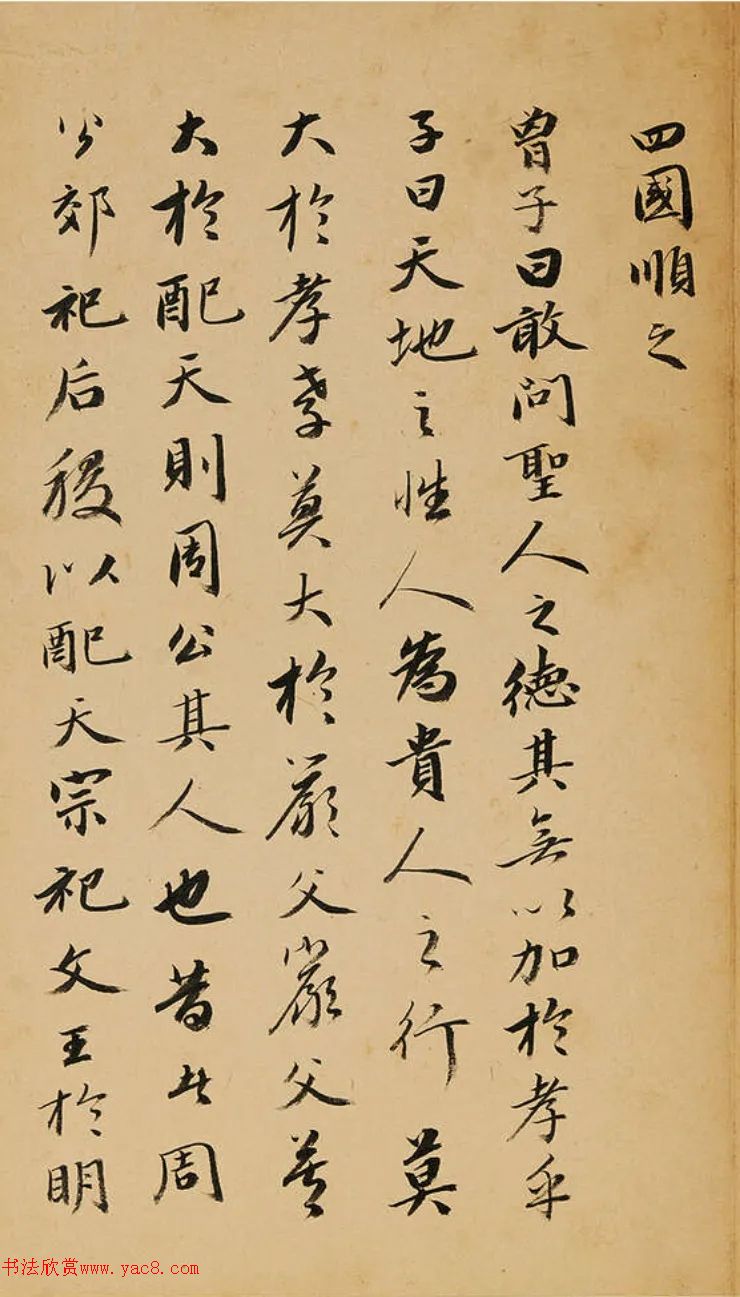 四國順之
曾子曰敢問聖人之德其無以加於孝乎
子曰天地之性人為貴人之行莫
大於孝孝莫大於嚴父嚴父莫
大於配天則周公其人也昔者周
公郊祀后稷以配天宗祀文王於明
书法欣赏www.yac8.com